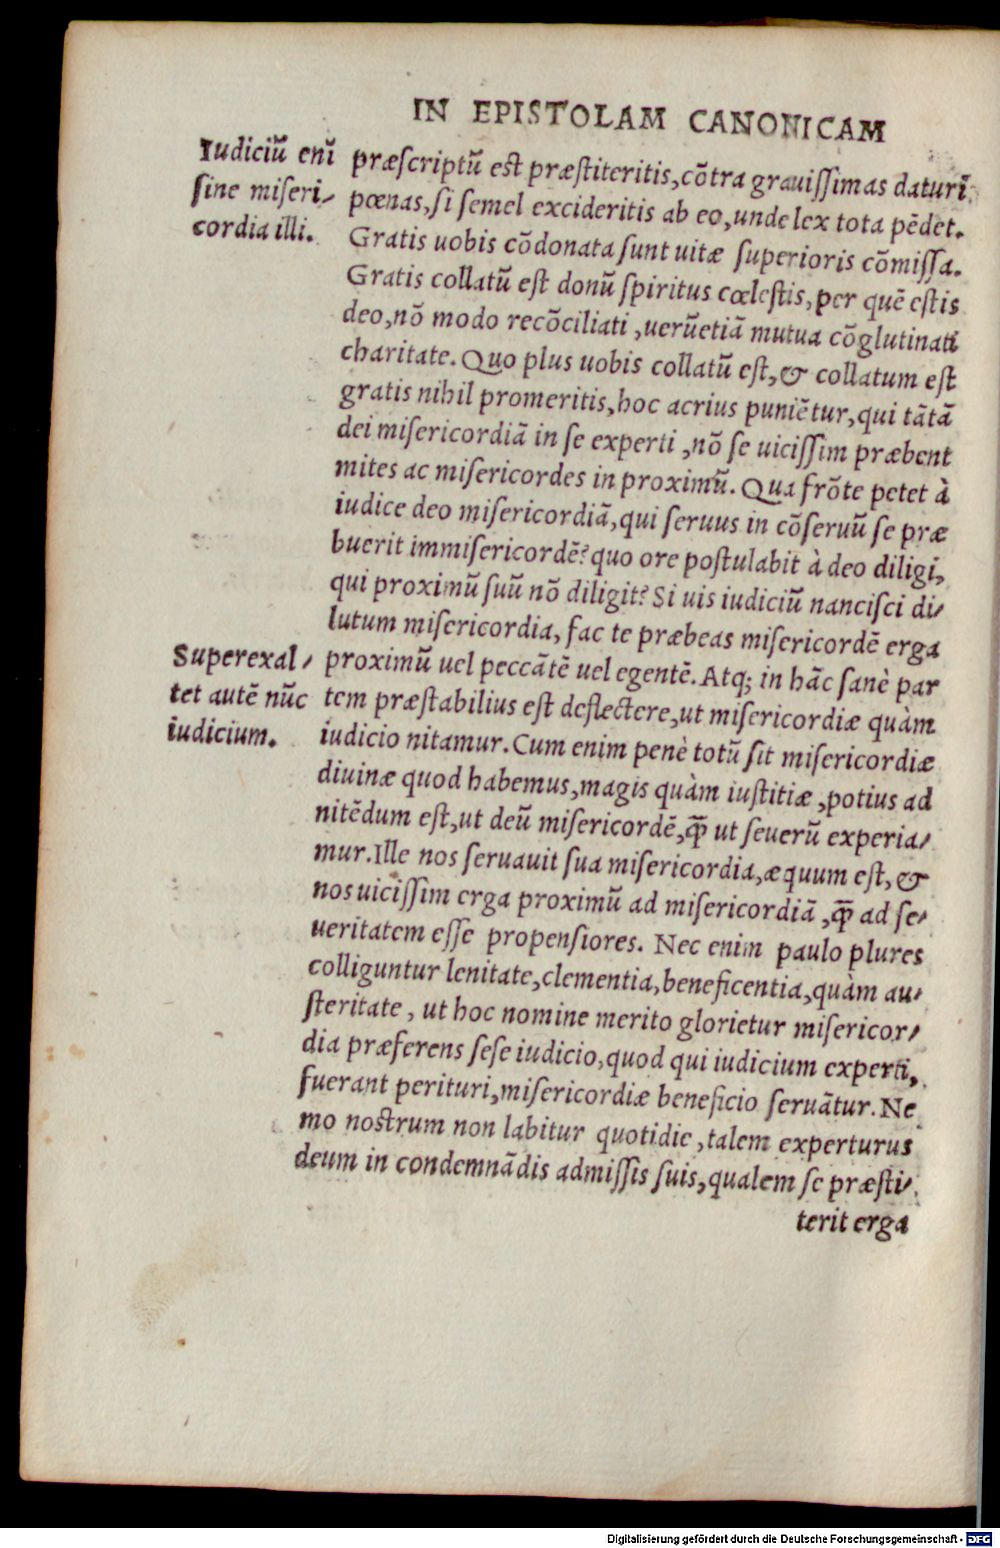 IN EPISTOLAM CANONICAM
Iudiciũ enĩ
sine miseri⸗
cordia illi.
præscriptũ est præstiteritis, cõtra grauissimas daturi
pœnas, si semel excideritis ab eo, unde lex tota pẽdet.
Gratis uobis cõdonata sunt uitæ superioris cõmissa.
Gratis collatũ est donũ spiritus cœlestis, per quẽ estis
deo, nõ modo recõciliati, uerũetiã mutua cõglutinati
charitate. Quo plus uobis collatũ est, & collatum est
gratis nihil promeritis, hoc acrius puniẽtur, qui tãtã
dei misericordiã in se experti, nõ se uicissim præbent
mites ac misericordes in proximũ. Qua frõte petet à
iudice deo misericordiã, qui seruus in cõseruũ se præ
buerit immisericordẽ? quo ore postulabit à deo diligi,
qui proximũ suũ nõ diligit? Si uis iudiciũ nancisci di⸗
lutum misericordia, fac te præbeas misericordẽ erga
Superexal⸗
tet autẽ nũc
iudicium.
proximũ uel peccãtẽ uel egentẽ. Atq; in hãc sanè par
tem præstabilius est deflectere, ut misericordiæ quàm
iudicio nitamur. Cum enim penè totũ sit misericordiæ
diuinæ quod habemus, magis quàm iustitiæ, potius ad
nitẽdum est, ut deũ misericordẽ, q̃ ut seuerũ experia⸗
mur. Ille nos seruauit sua misericordia, æquum est, &
nos uicissim erga proximũ ad misericordiã, q̃ ad se⸗
ueritatem esse propensiores. Nec enim paulo plures
colliguntur lenitate, clementia, beneficentia, quàm au⸗
steritate, ut hoc nomine merito glorietur misericor⸗
dia præferens sese iudicio, quod qui iudicium experti,
fuerant perituri, misericordiæ beneficio seruãtur. Ne
mo nostrum non labitur quotidie, talem experturus
deum in condemnãdis admissis suis, qualem se præsti⸗
terit erga
Digitalisierung gefördert durch die Deutsche Forschungsgemeinschaft - DFG